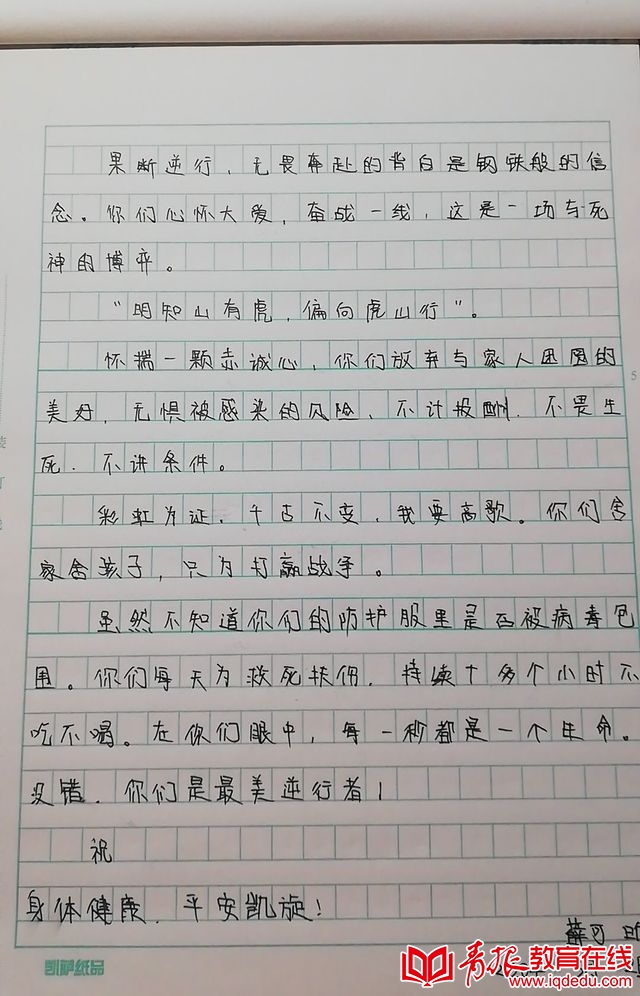 果断逆行，无畏奔赴的背白是钢铁般的信
念。你们心怀大爱，奋战一线，这是一场与死
神的博弈。
“明知山有虎，偏向虎山行”。
怀揣一颗赤诚心，你们放弃与家人团圆的
美好，无惧被感染的风险、不计报酬.不畏生
死.不讲条件。
彩虹为证，千古不变，我要高歌。你们舍
家舍孩子，只为打赢战争。
虽然不知道你们的防护服里是否被病毒包
围。你们每天为救死扶伤.持续十多个小时不
吃不喝。在你们眼中，每一秒都是一个生命。
没错.你们是最美逆行者！
祝
身体健康.平安凯旋！
薛可
凯萨纸品
青报教育在线
www.iqdedu.com